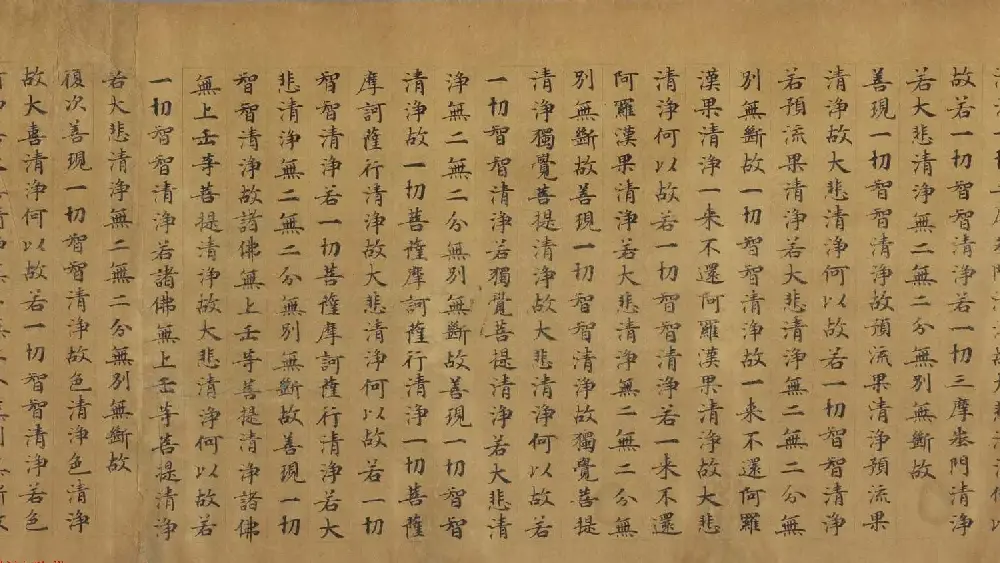 故若一切智智清淨若一切三摩地門清淨
若大悲清淨無二無二分無別無斷故
善現一切智智清淨故預流果清淨預流果
清淨故大悲清淨何以故若一切智智清淨
若預流果清淨若大悲清淨無二無二分無
別無斷故一切智智清淨故一來不還阿羅
漢果清淨一來不還阿羅漢果清淨故大悲
清淨何以故若一切智智清淨若一來不還
阿羅漢果清淨若大悲清淨無二無二分無
別無斷故善現一切智智清淨故獨覺菩提
清淨獨覺菩提清淨故大悲清淨何以故若
一切智智清淨若獨覺菩提清淨若大悲清
淨無二無二分無別無斷故善現一切智智
清淨故一切菩薩摩訶薩行清淨一切菩薩
摩訶薩行清淨故大悲清淨何以故若一切
智智清淨若一切菩薩摩訶薩行清淨若大
悲清淨無二無二分無別無斷故善現一切
智智清淨故諸佛無上正等菩提清淨諸佛
無上正等菩提清淨故大悲清淨何以故若
一切智智清淨若諸佛無上正等菩提清淨
若大悲清淨無二無二分無別無斷故
復次善現一切智智清淨故色清淨色清淨
故大喜清淨何以故若一切智智清淨若色